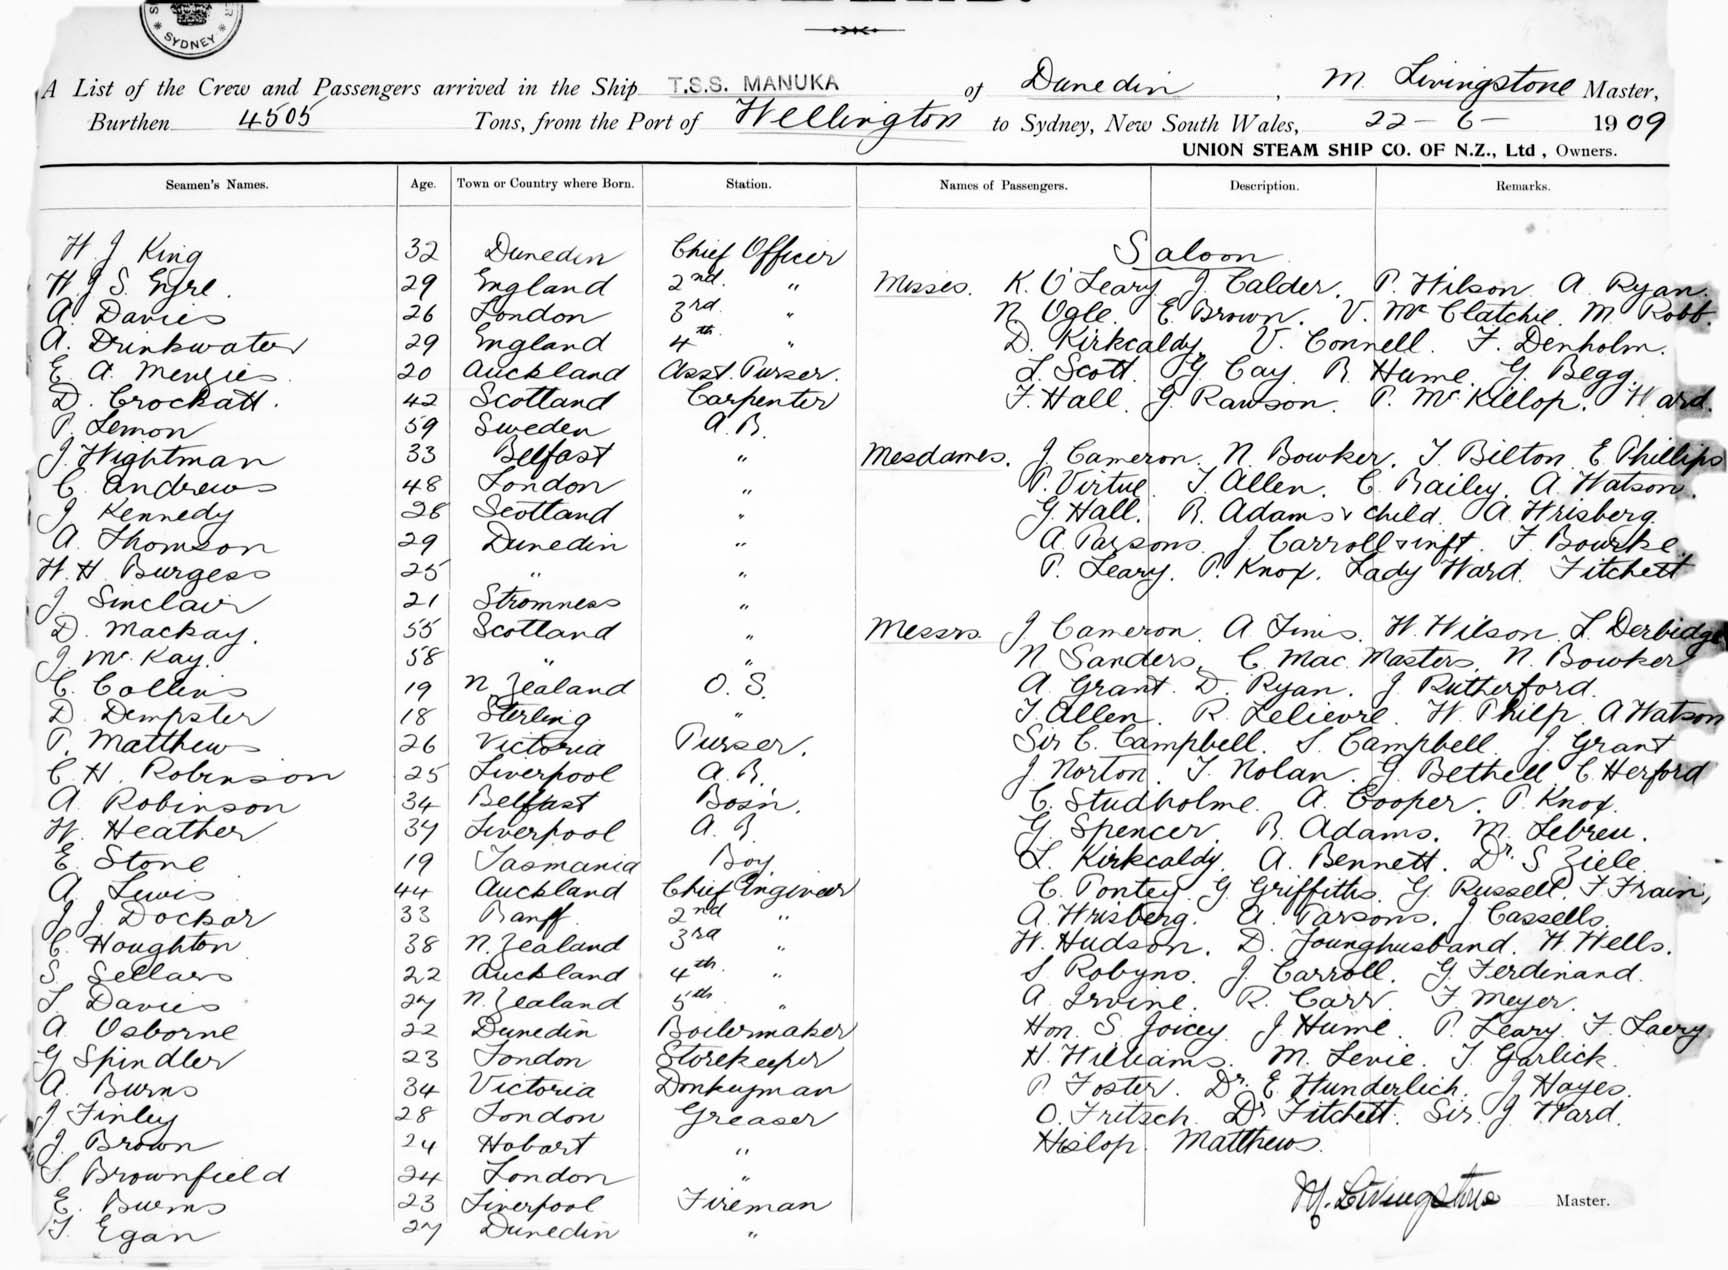 SYDNEY
A List of the Crew and Passengers arrived in the Ship T.S.S. MANUKA of Dunedin, M. Livingstone Master,
Burthen 4505 Tons, from the Port of Wellington to Sydney, New South Wales, 22-6-1909
UNION STEAM SHIP CO. OF N.Z., Ltd, Owners.
Seamen's Names. Age. Town or Country where Born. Station. Names of Passengers. Description. Remarks.
H J King 32 Dunedin Chief Officer
H J S. Eyre. 29 England 2nd. "
A. Davies 26 London 3rd. "
A. Drinkwater 29 England 4th. "
E. A. Menzies. 20 Auckland Asst. Purser.
D. Crockatt. 42 Scotland Carpenter
P. Lemon 59 Sweden A.B.
J. Wightman 33 Belfast "
C. Andrews 48 London "
J Kennedy 28 Scotland "
A. Thomson 29 Dunedin "
W. H. Burgess 25 " "
J Sinclair 21 Stromness "
D. Mackay. 55 Scotland "
J. McKay. 58 " "
C. Collins 19 N Zealand O.S.
D. Dempster 18 Sterling "
P. Matthews 26 Victoria Purser.
C. H. Robinson 25 Liverpool A.B.
A. Robinson 34 Belfast Bosn.
W. Heather 37 Liverpool A.B.
E. Stone 19 Tasmania Boy
A. Lewis 44 Auckland Chief Engineer
J J. Dockar 33 Banff. 2nd "
C. Houghton 38 N. Zealand 3rd "
S. Sellars 22 Auckland 4th. "
T. Davies 27 N. Zealand 5th. "
A. Osborne 22 Dunedin Boilermaker
G Spindler 23 London Storekeeper
A. Burns 34 Victoria Donkeyman
J. Finley 28 London Greaser
J. Brown 24 Hobart "
S. Brownfield 24 London "
E. Burns 23 Liverpool Fireman
T. Egan 27 Dunedin "
Saloon
Misses. K. O'Leary J. Calder. P. Wilson A. Ryan.
N Ogle. E. Brown. V. McClatchie. M. Robb.
D. Kirkcaldy. V. Connell. F. Denholm.
L. Scott. G. Cay. B. Hume. G. Begg.
F. Hall. G. Rawson. P. McKillop. Ward.
Mesdames. J. Cameron. N. Bowker. T. Bilton. E Phillips
P. Virtue. T. Allen. C. Bailey. A. Watson.
G. Hall. B. Adams & child. A. Wrisberg.
A. Parsons. J. Carroll & inft. F. Bourke.
P. Leary. P. Knox. Lady Ward. Fitchett
Messrs. J. Cameron. A. W. Wilson. L. Derbidge
N Sanders, C. MacMasters. N. Bowker
A. Grant. D. Ryan. J. Rutherford.
T. Allen. R. Lelievre. W. Philp. A Watson
Sir C. Campbell. S. Campbell. J. Grant
J. Norton. T. Nolan. G. Bethell. C. Herford
C. Studholme. A. Cooper. P. Knox.
G. Spencer. B. Adams. M. Lebreu.
L. Kirkcaldy. A. Bennett. Dr. S Ziele.
C. Pontey. G Griffiths. G. Russell. F. Frain,
A. Wrisberg. A. Parsons. J. Cassells.
W. Hudson. D. Younghusband. W. Wells.
S. Robyns. J. Carroll. G. Ferdinand.
A. Irvine. R. Carr. F. Meyer.
Hon. S. Joicey. J. Hume. P. Leary. F. Laery
H. Williams. M. Levie. T. Garlick.
P. Foster. Dr. E. Wunderlich. J Hayes.
O. Fritsch. Dr. Fitchett. Sir. J Ward.
Hislop. Matthews.
M. Livingstone Master.